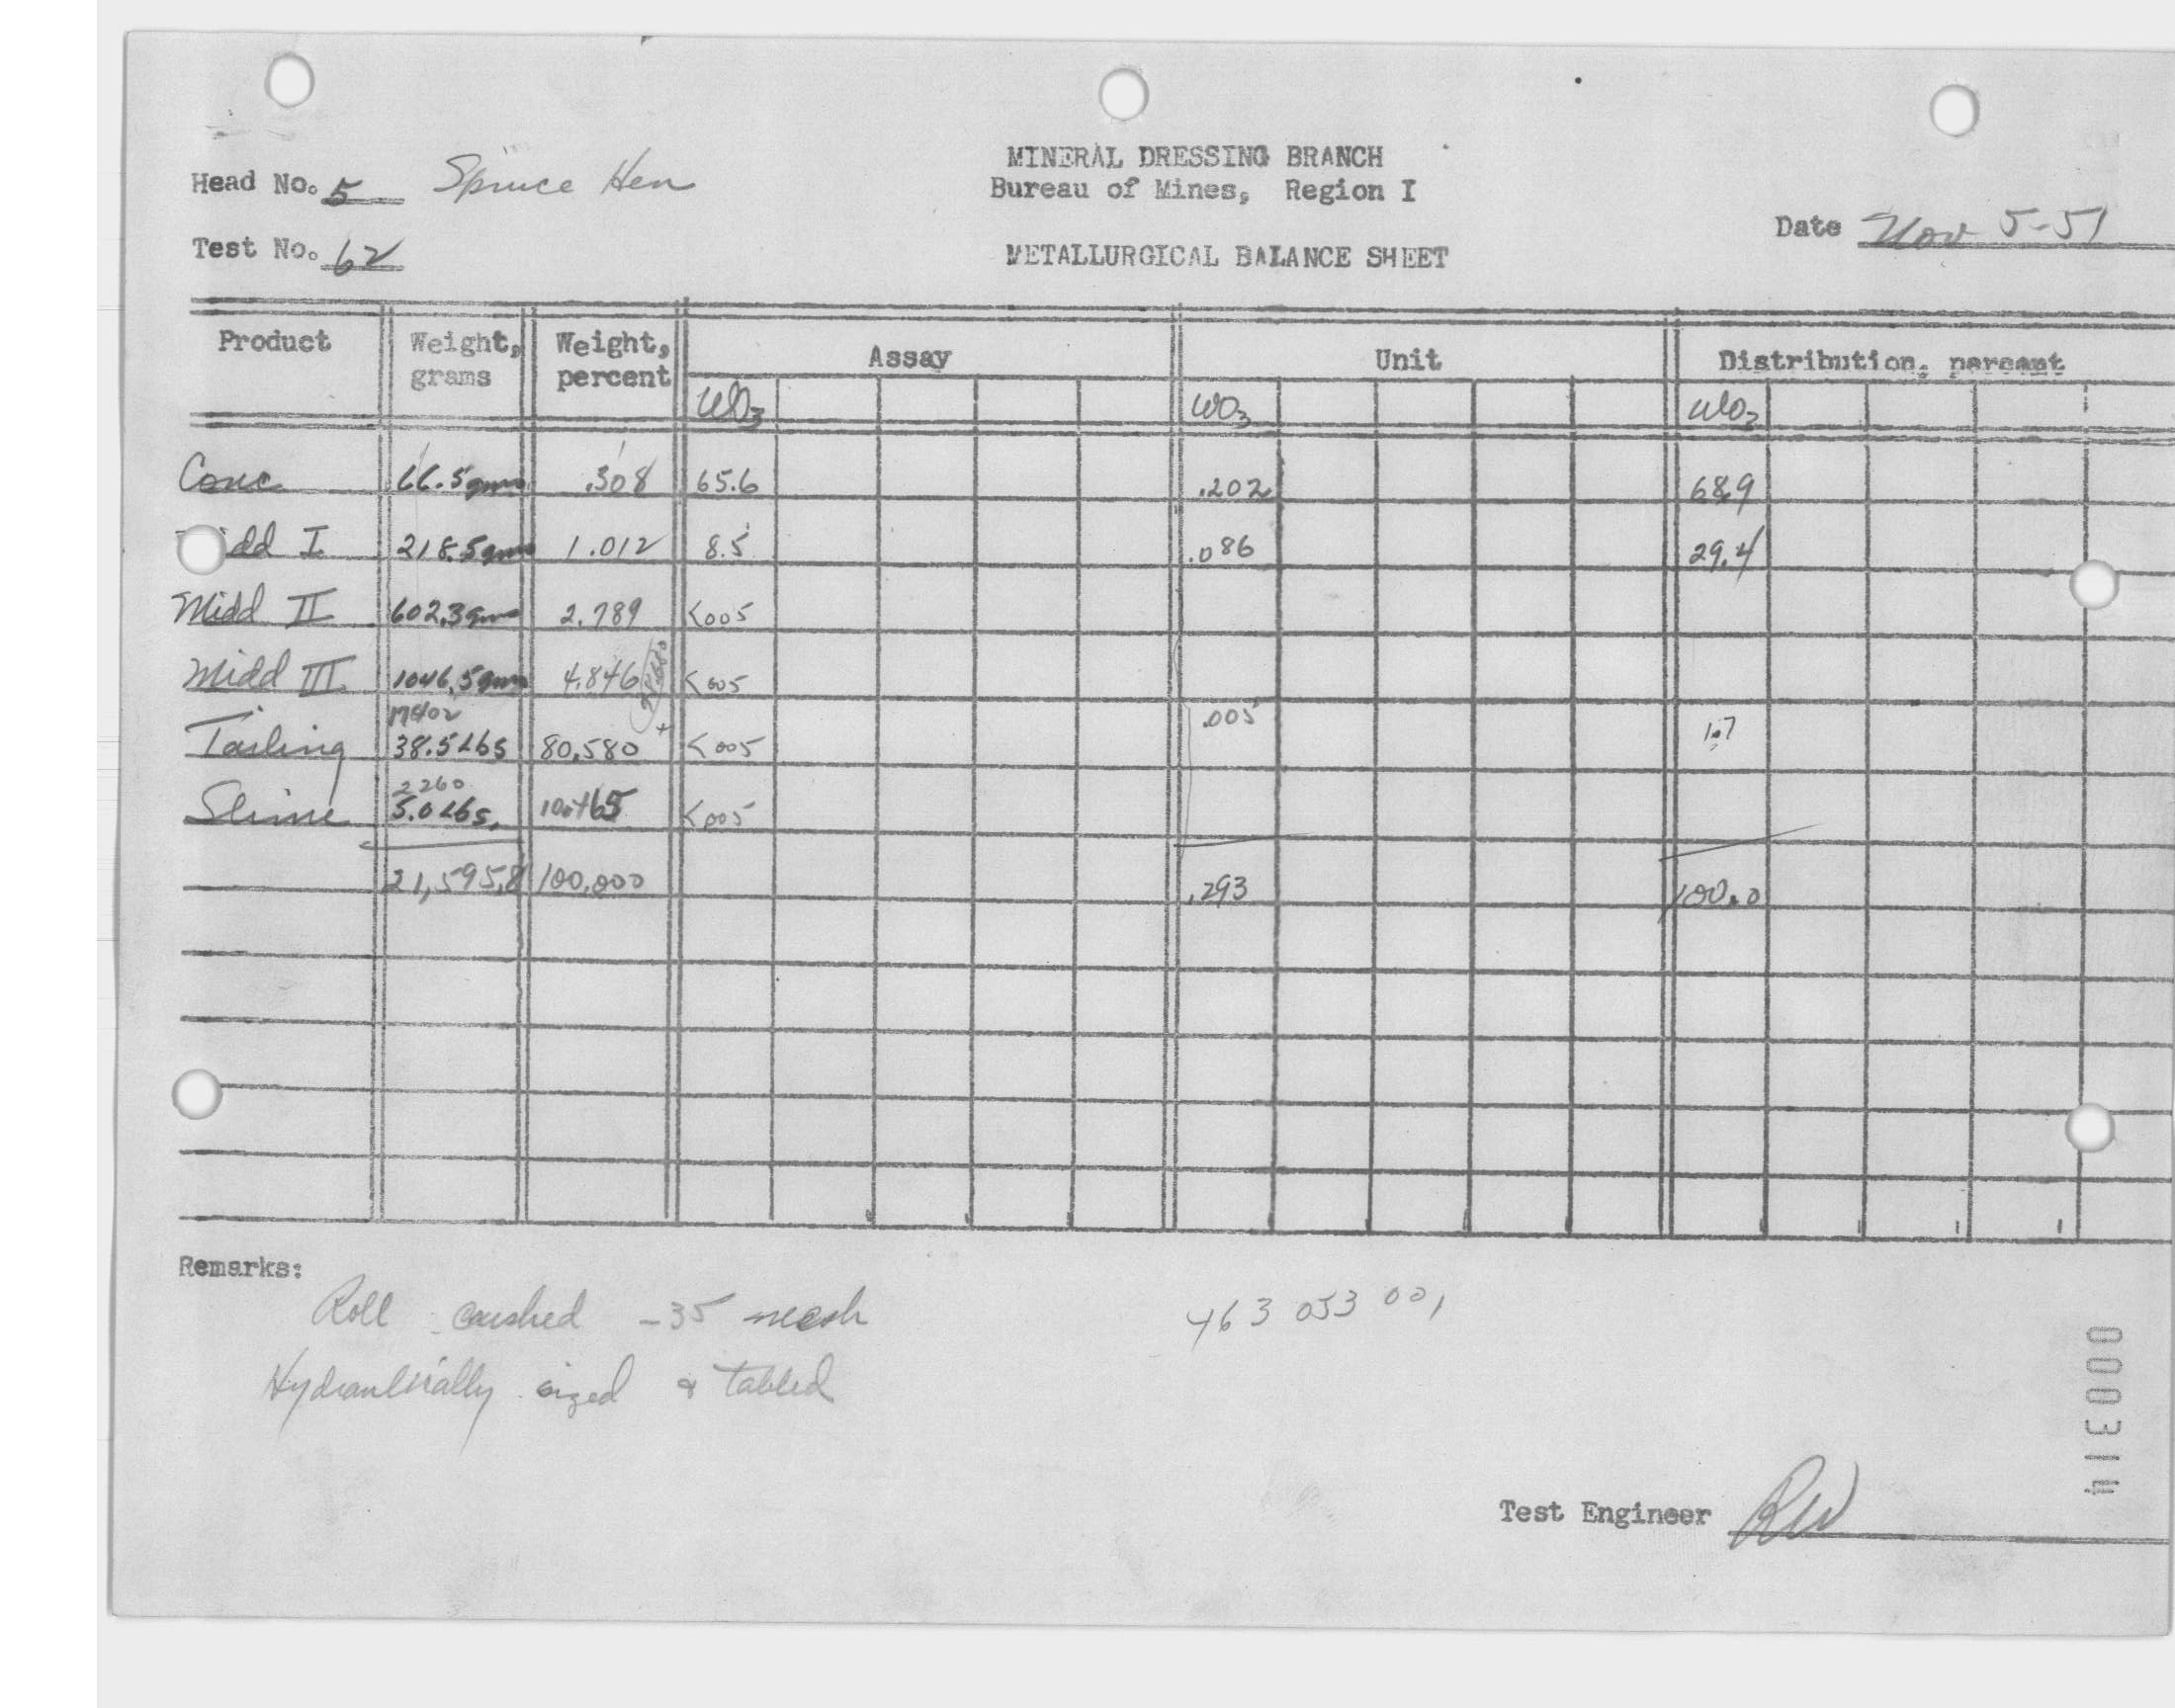 MINERAL DRESSING BRANCH
Head No. 5 Spruce Hen
Bureau of Mines, Region I
Date Nov 5-51
Test No. 62
METALLURGICAL BALANCE SHEET
Product Weight, grams Weight, percent Assay Unit Distribution, percent
WO3 WO3 WO3
Conc 66.5 gms .308 65.6 .202 68.9
Midd I 218.5 gms 1.012 8.5 .086 29.4
Midd II 602.3 gms 2.789 <005
Midd III 1046.5 gms 4.846 <005
17402 .005 1.7
Tailing 38.5 Lbs 80.580 <005
2260
Slime 5.0 Lbs. 10.465 <005
21,595.8 100.000 .293 100.0
Remarks:
Roll crushed -35 mesh 463 053 001
Hydraulically sized & tabled
000314
Test Engineer RW